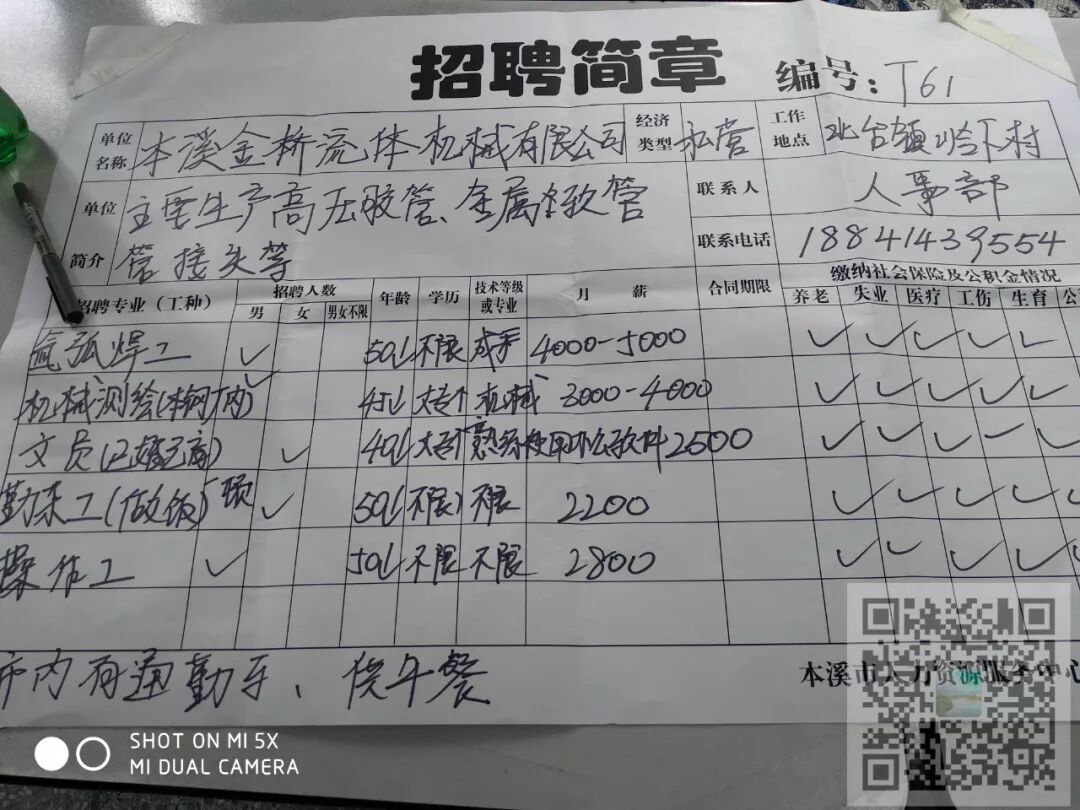 招聘简章 编号: T61
单位名称 本溪金桥流体机械有限公司 经济类型 私营 工作地点 北台镇岭下村
单位简介 主要生产高压胶管、金属软管 联系人 人事部
管接头等 联系电话 18841439554
招聘专业（工种） 招聘人数 年龄 学历 技术等级或专业 月薪 合同期限 缴纳社会保险及公积金情况
男 女 男女不限 养老 失业 医疗 工伤 生育 公
氩弧焊工 ✓ 50以 不限 成手 4000-5000 ✓ ✓ ✓ ✓ ✓
机械测绘(本钢厂内) ✓ 45以 大专 机械 3000-4000 ✓ ✓ ✓ ✓ ✓
文员(已婚已育) ✓ 40以 大专 熟练使用办公软件 2500 ✓ ✓ ✓ ✓ ✓
勤杂工(做饭) ✓ 50以 不限 不限 2200 ✓ ✓ ✓ ✓ ✓
操作工 ✓ 50以 不限 不限 2800 ✓ ✓ ✓ ✓ ✓
市内有通勤车、供午餐 本溪市人力资源服务中心
SHOT ON MI 5X
MI DUAL CAMERA